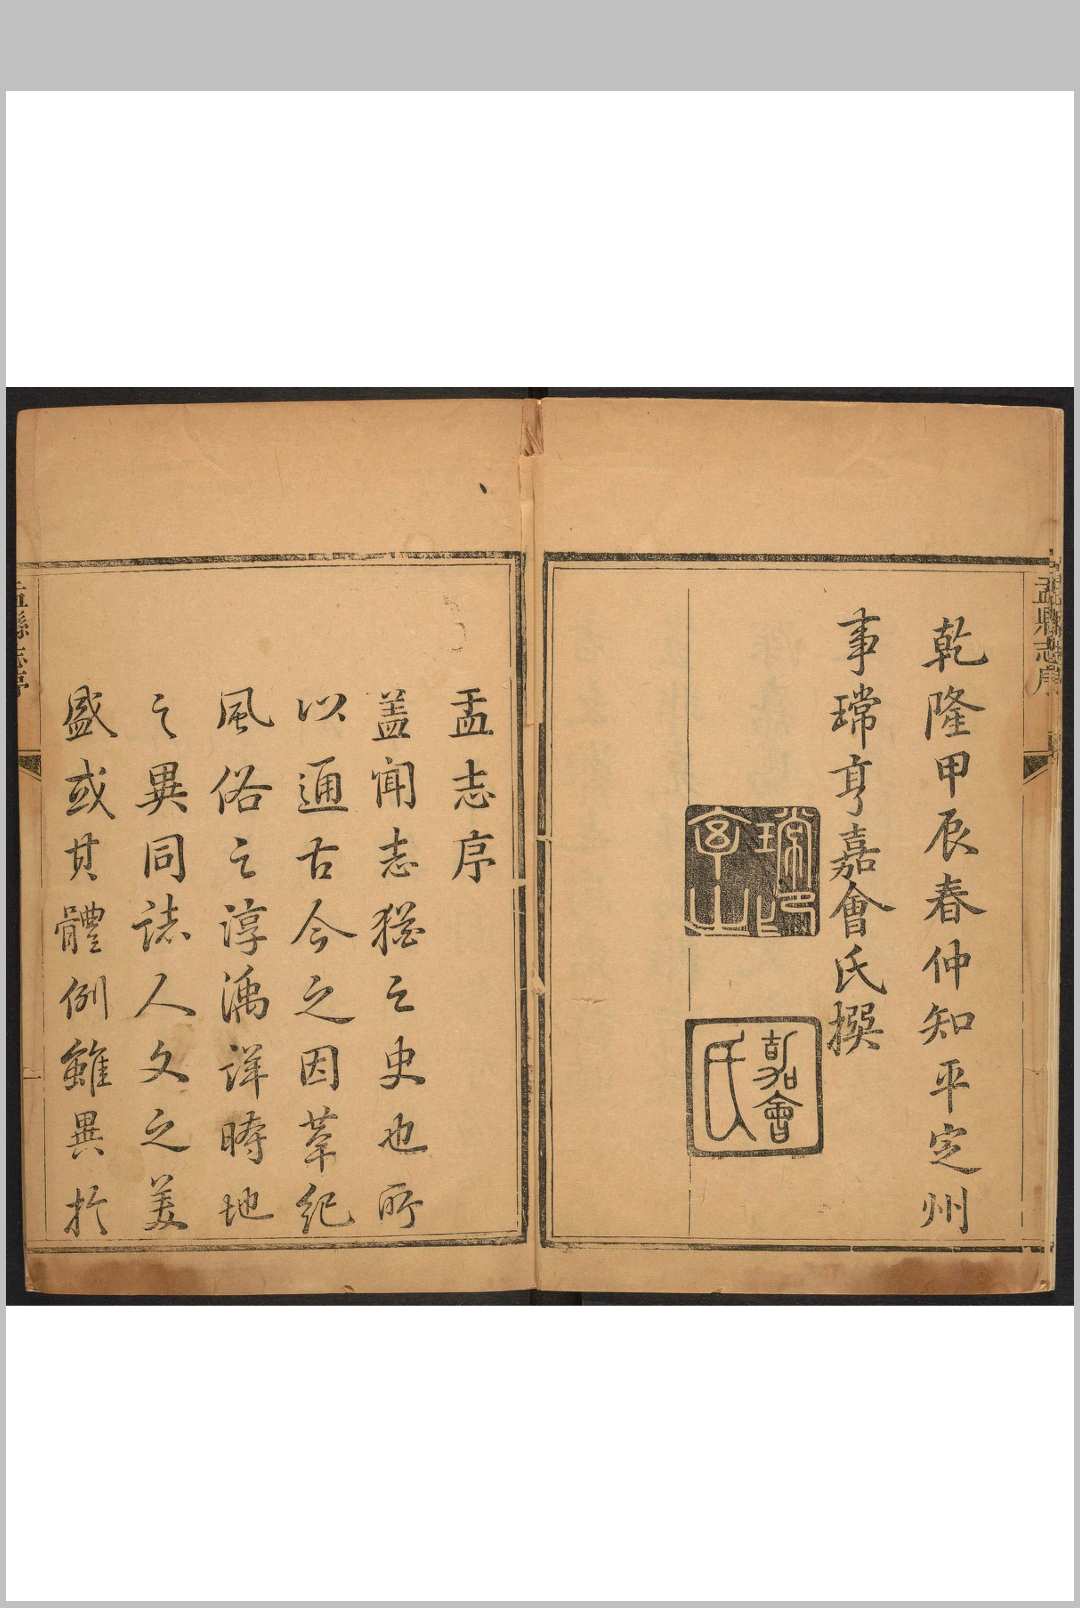 盂縣志序
乾隆甲辰春仲知平定州
事瑺亨嘉會氏撰
嘉會
氏
盂志序
盖聞志猶之史也所
以通古今之因革紀
風俗之淳澆詳時地
之異同誌人文之美
盛或其體例雖異於
盂縣志序